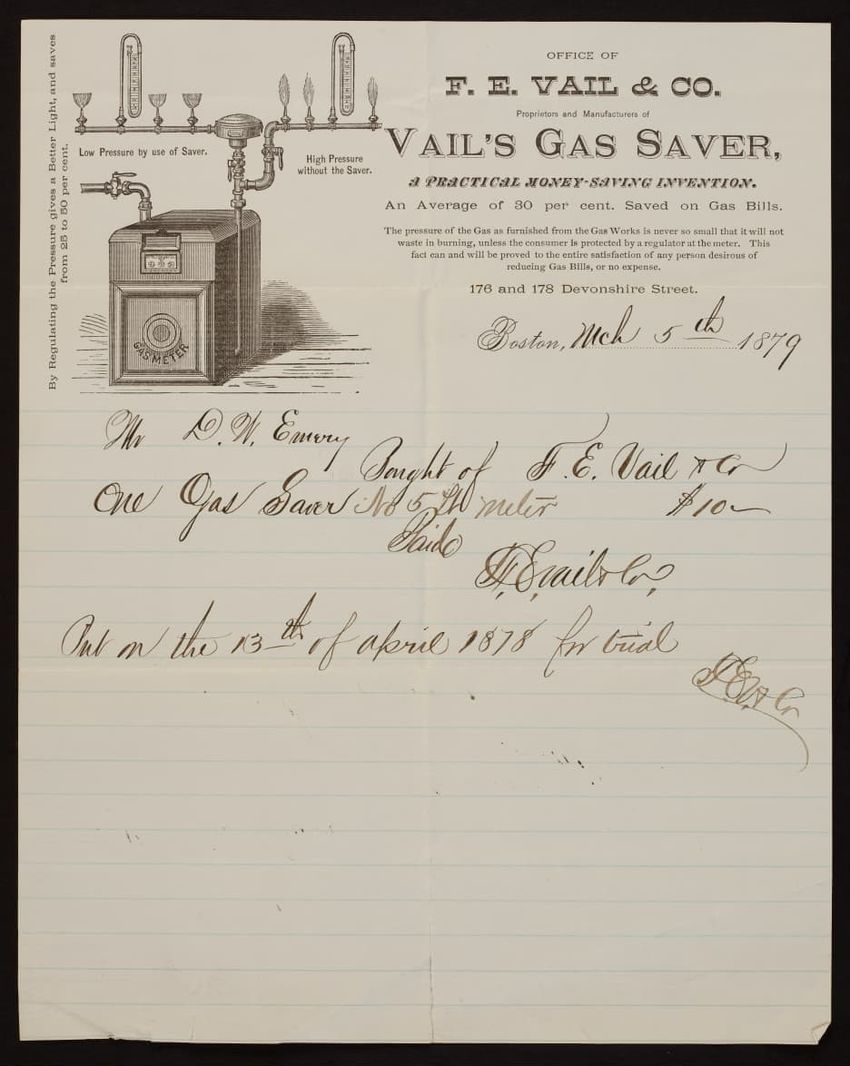 By Regulating the Pressure gives a Better Light, and saves
from 25 to 50 per cent.
Low Pressure by use of Saver.
High Pressure
without the Saver.
GAS METER
OFFICE OF
F. E. VAIL & CO.
Proprietors and Manufacturers of
VAIL'S GAS SAVER,
A PRACTICAL MONEY-SAVING INVENTION.
An Average of 30 per cent. Saved on Gas Bills.
The pressure of the Gas as furnished from the Gas Works is never so small that it will not
waste in burning, unless the consumer is protected by a regulator at the meter. This
fact can and will be proved to the entire satisfaction of any person desirous of
reducing Gas Bills, or no expense.
176 and 178 Devonshire Street.
Boston, Mch 5th 1879
Mr D. W. Emery
Bought of F. E. Vail & Co
One Gas Saver No 5 Lt meter $10—
Paid
F. E. Vail & Co.
Put on the 13th of april 1878 for trial
F. E. V & Co